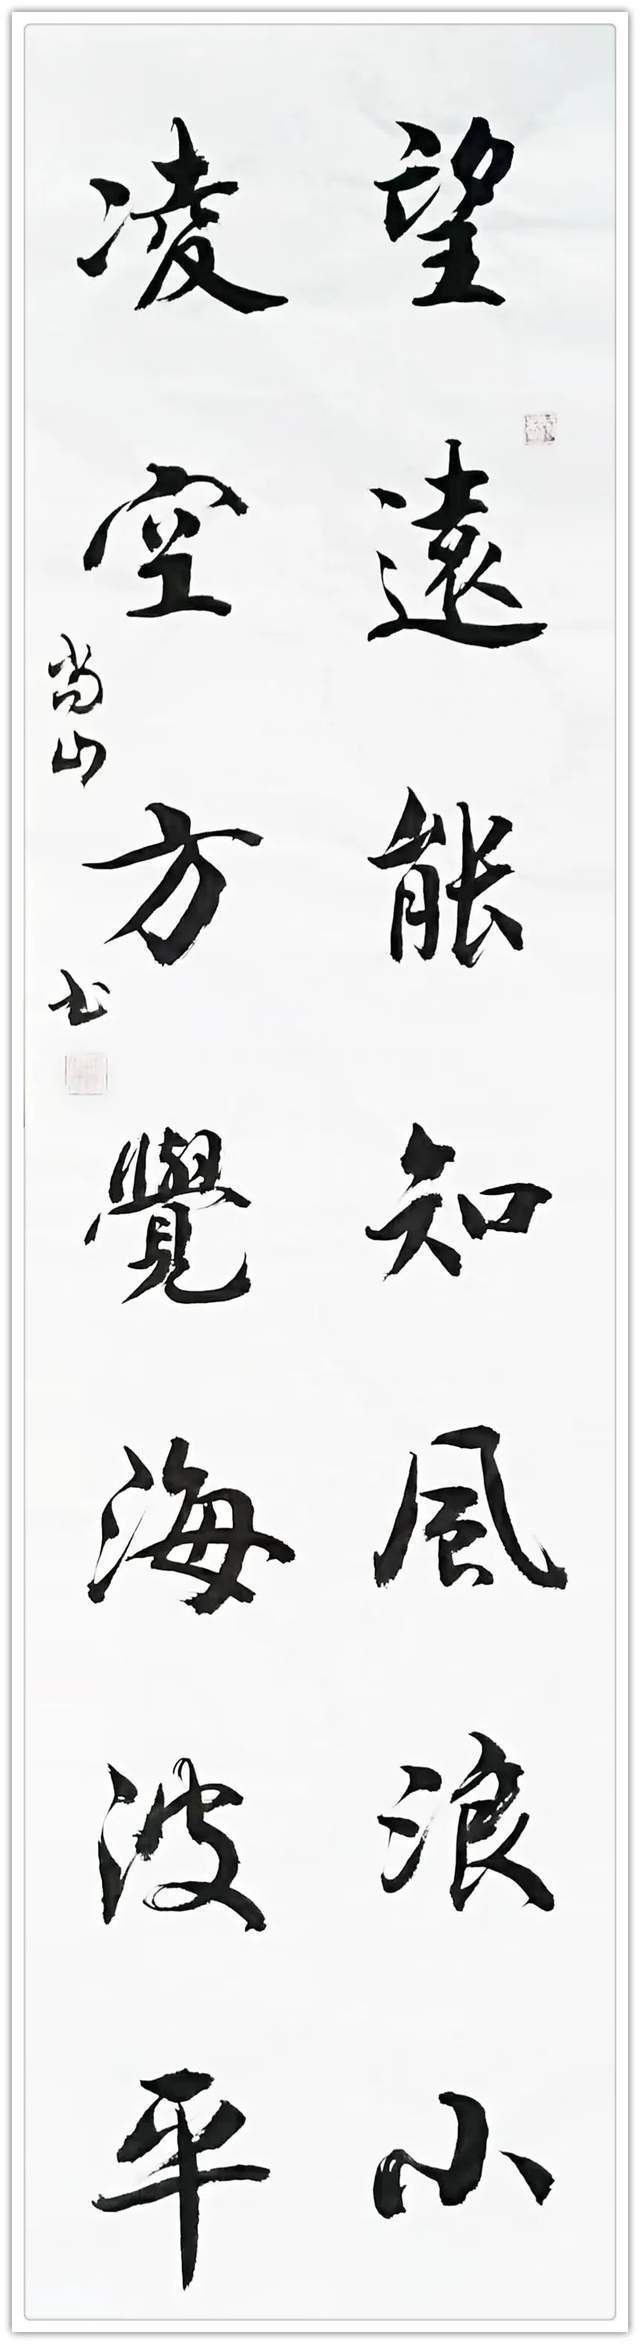 望遠能知風浪小
凌空方覺海波平
尚山 书